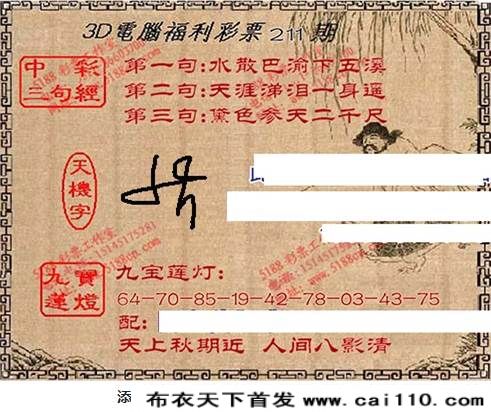 3D電腦福利彩票211期
中彩三句經
第一句:水散巴渝下五溪
第二句:天涯涕泪一身遥
第三句:黛色参天二千尺
天機字
九寶蓮燈
九宝莲灯:
64-70-85-19-42-78-03-43-75
配:
天上秋期近 人间八影清
5188 彩票工作室
15145175281
添
布衣天下首发 www.cai110.com